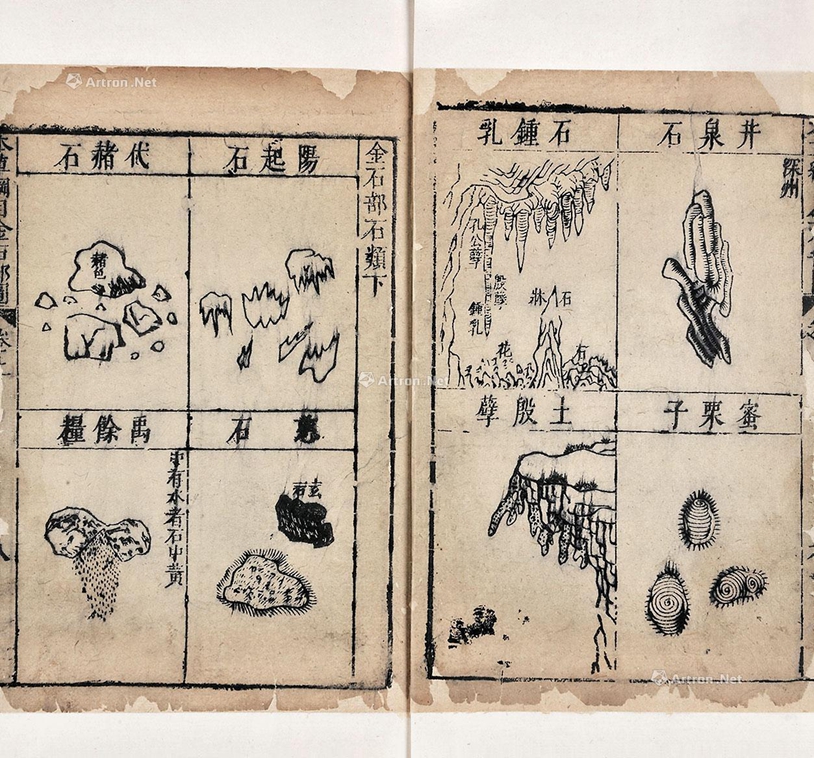 井泉石
深州
石鍾乳
孔公孽
殷孽
鍾乳
石牀
花
石
蜜栗子
土殷孽
金石部石類下
陽起石
代赭石
赭色
石
玄石
禹餘糧
中有水者石中黃
綱目金石部圖
Artron.Net
Artron.Net
Artron.Net